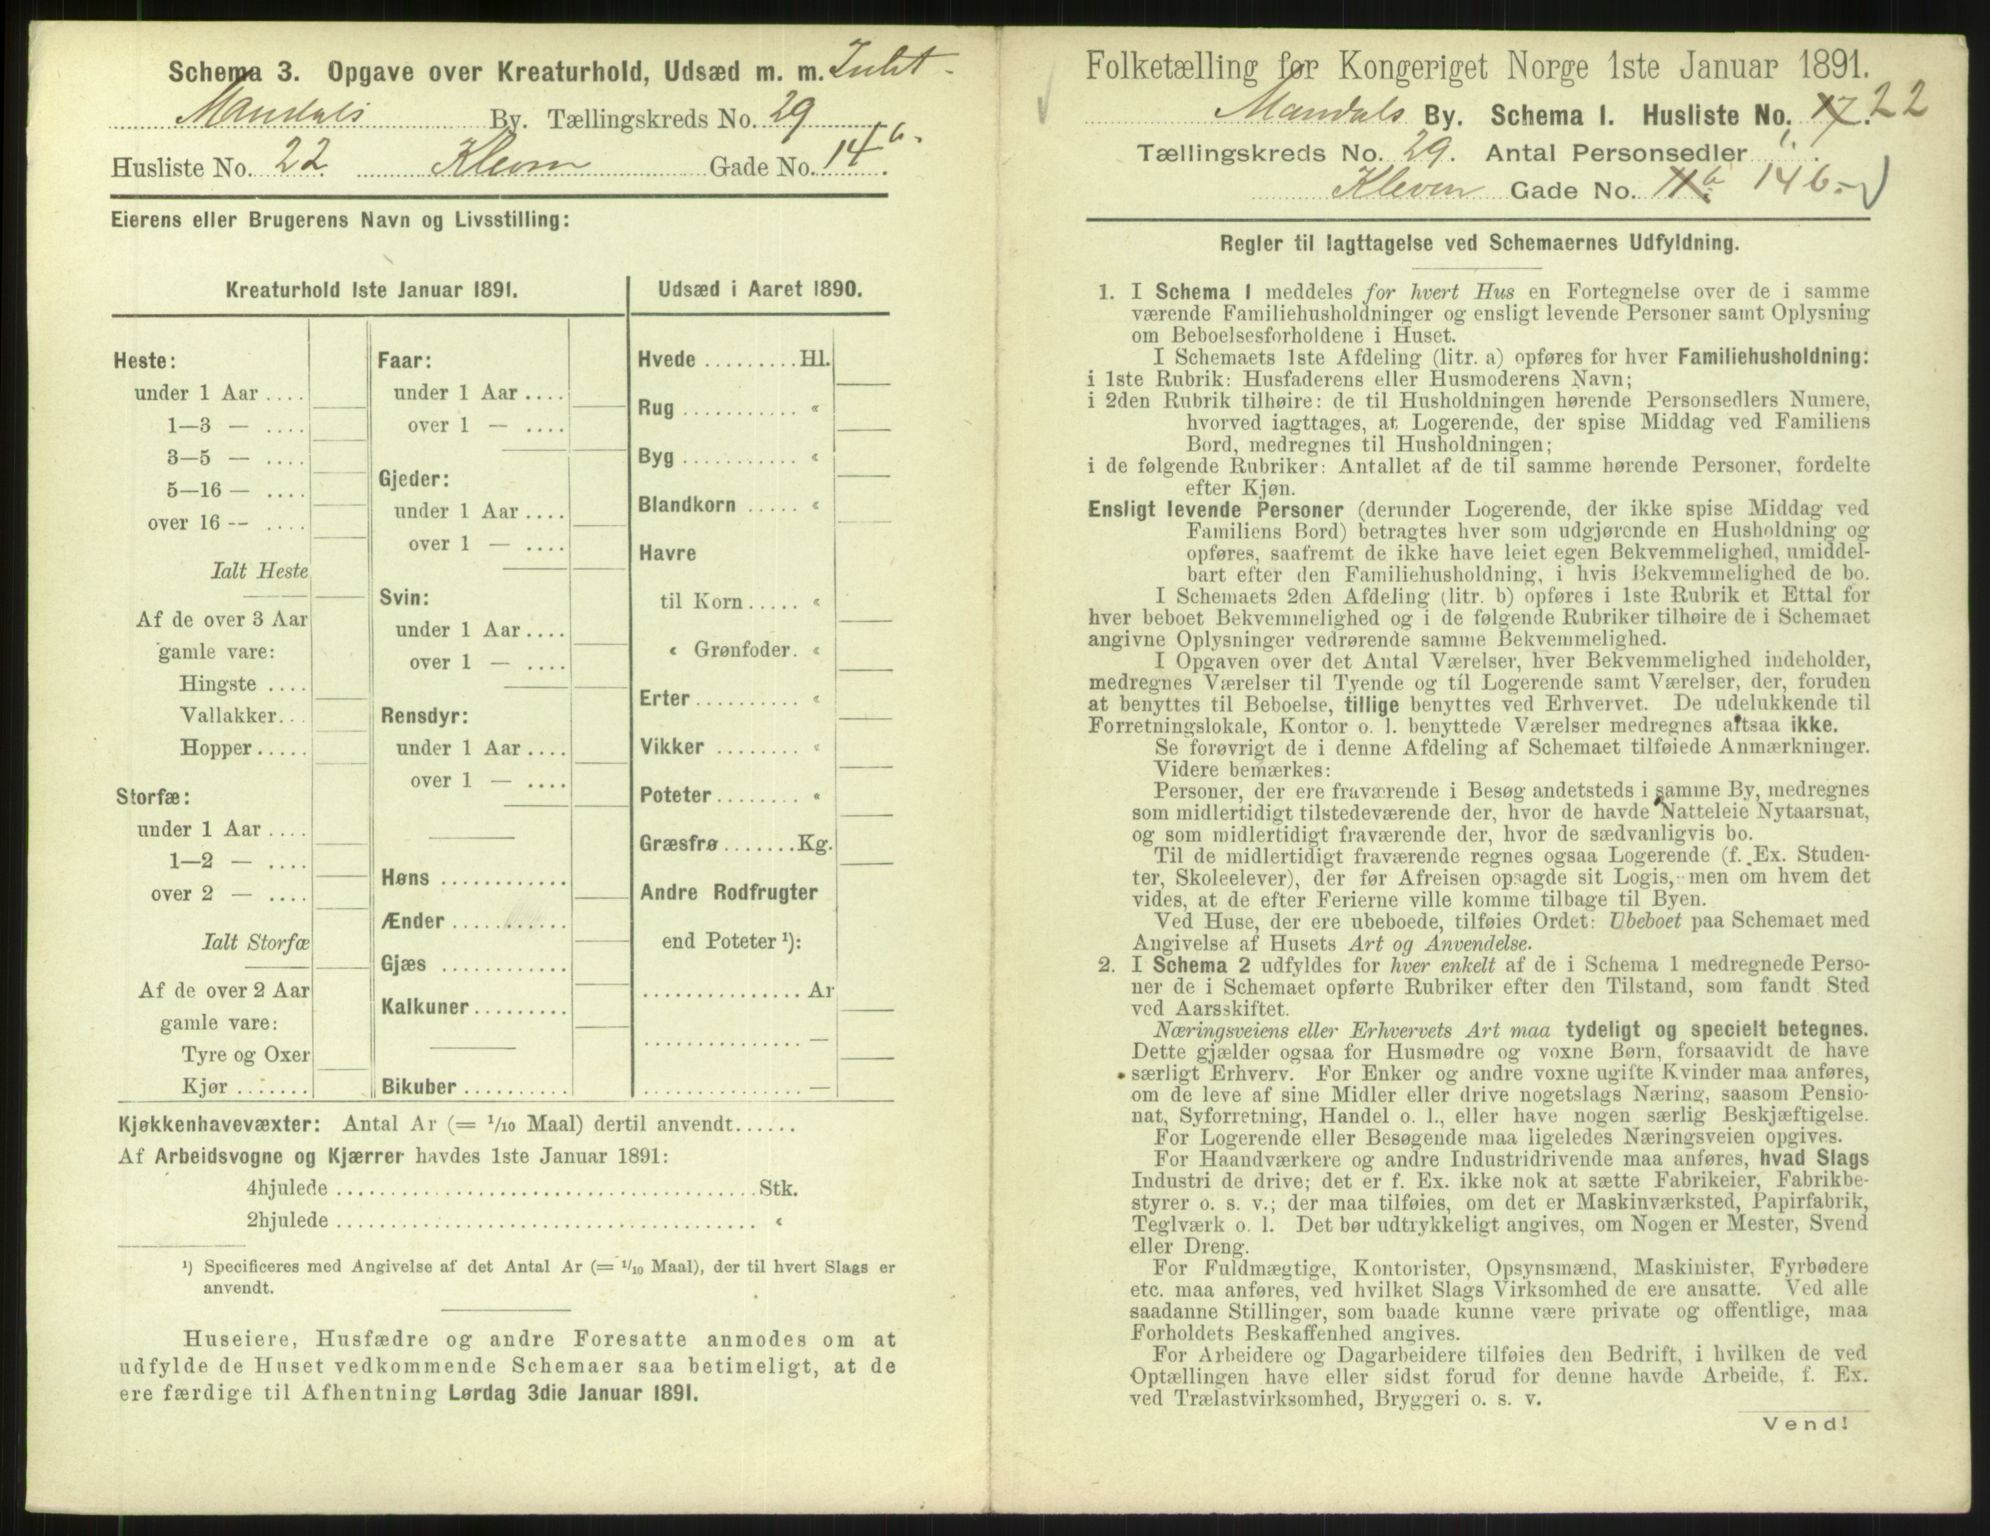 Schema 3. Opgave over Kreaturhold, Udsæd m. m. Intet
Mandals By. Tællingskreds No. 29
Husliste No. 22 Kleven Gade No. 14 b.
Eierens eller Brugerens Navn og Livsstilling:
Kreaturhold 1ste Januar 1891.
Heste:
under 1 Aar ....
1—3 — ....
3—5 — ....
5—16 — ....
over 16 -- ....
Ialt Heste
Af de over 3 Aar
gamle vare:
Hingste ....
Vallakker...
Hopper.....
Storfæ:
under 1 Aar ....
1—2 — ....
over 2 — ....
Ialt Storfæ
Af de over 2 Aar
gamle vare:
Tyre og Oxer
Kjør .......
Faar:
under 1 Aar ....
over 1 — ....
Gjeder:
under 1 Aar ....
over 1 — ....
Svin:
under 1 Aar ....
over 1 — ....
Rensdyr:
under 1 Aar ....
over 1 — ....
Høns ............
Ænder ...........
Gjæs ............
Kalkuner.........
Bikuber ..........
Udsæd i Aaret 1890.
Hvede .........Hl.
Rug ........... «
Byg ........... «
Blandkorn ..... «
Havre
til Korn ..... «
« Grønfoder. «
Erter ......... «
Vikker ........ «
Poteter ........ «
Græsfrø .......Kg.
Andre Rodfrugter
end Poteter ¹):
............... Ar
............... —
............... —
Kjøkkenhavevæxter: Antal Ar (= 1/10 Maal) dertil anvendt......
Af Arbeidsvogne og Kjærrer havdes 1ste Januar 1891:
4hjulede ........................................ Stk.
2hjulede ........................................ «
¹) Specificeres med Angivelse af det Antal Ar (= 1/10 Maal), der til hvert Slags er
anvendt.
Huseiere, Husfædre og andre Foresatte anmodes om at
udfylde de Huset vedkommende Schemaer saa betimeligt, at de
ere færdige til Afhentning Lørdag 3die Januar 1891.
Folketælling for Kongeriget Norge 1ste Januar 1891.
Mandals By. Schema 1. Husliste No. 17. 22
Tællingskreds No. 29. Antal Personsedler
Kleven Gade No. 11 b 14 b.
Regler til Iagttagelse ved Schemaernes Udfyldning.
1. I Schema 1 meddeles for hvert Hus en Fortegnelse over de i samme
værende Familiehusholdninger og ensligt levende Personer samt Oplysning
om Beboelsesforholdene i Huset.
I Schemaets 1ste Afdeling (litr. a) opføres for hver Familiehusholdning:
i 1ste Rubrik: Husfaderens eller Husmoderens Navn;
i 2den Rubrik tilhøire: de til Husholdningen hørende Personsedlers Numere,
hvorved iagttages, at Logerende, der spise Middag ved Familiens
Bord, medregnes til Husholdningen;
i de følgende Rubriker: Antallet af de til samme hørende Personer, fordelte
efter Kjøn.
Ensligt levende Personer (derunder Logerende, der ikke spise Middag ved
Familiens Bord) betragtes hver som udgjørende en Husholdning og
opføres, saafremt de ikke have leiet egen Bekvemmelighed, umiddel-
bart efter den Familiehusholdning, i hvis Bekvemmelighed de bo.
I Schemaets 2den Afdeling (litr. b) opføres i 1ste Rubrik et Ettal for
hver beboet Bekvemmelighed og i de følgende Rubriker tilhøire de i Schemaet
angivne Oplysninger vedrørende samme Bekvemmelighed.
I Opgaven over det Antal Værelser, hver Bekvemmelighed indeholder,
medregnes Værelser til Tyende og til Logerende samt Værelser, der, foruden
at benyttes til Beboelse, tillige benyttes ved Erhvervet. De udelukkende til
Forretningslokale, Kontor o. l. benyttede Værelser medregnes altsaa ikke.
Se forøvrigt de i denne Afdeling af Schemaet tilføiede Anmærkninger.
Videre bemærkes:
Personer, der ere fraværende i Besøg andetsteds i samme By, medregnes
som midlertidigt tilstedeværende der, hvor de havde Natteleie Nytaarsnat,
og som midlertidigt fraværende der, hvor de sædvanligvis bo.
Til de midlertidigt fraværende regnes ogsaa Logerende (f. Ex. Studen-
ter, Skoleelever), der før Afreisen opsagde sit Logis, men om hvem det
vides, at de efter Ferierne ville komme tilbage til Byen.
Ved Huse, der ere ubeboede, tilføies Ordet: Ubeboet paa Schemaet med
Angivelse af Husets Art og Anvendelse.
2. I Schema 2 udfyldes for hver enkelt af de i Schema 1 medregnede Perso-
ner de i Schemaet opførte Rubriker efter den Tilstand, som fandt Sted
ved Aarsskiftet.
Næringsveiens eller Erhvervets Art maa tydeligt og specielt betegnes.
Dette gjælder ogsaa for Husmødre og voxne Børn, forsaavidt de have
særligt Erhverv. For Enker og andre voxne ugifte Kvinder maa anføres,
om de leve af sine Midler eller drive nogetslags Næring, saasom Pensio-
nat, Syforretning, Handel o. l., eller have nogen særlig Beskjæftigelse.
For Logerende eller Besøgende maa ligeledes Næringsveien opgives.
For Haandværkere og andre Industridrivende maa anføres, hvad Slags
Industri de drive; det er f. Ex. ikke nok at sætte Fabrikeier, Fabrikbe-
styrer o. s. v.; der maa tilføies, om det er Maskinværksted, Papirfabrik,
Teglværk o. l. Det bør udtrykkeligt angives, om Nogen er Mester, Svend
eller Dreng.
For Fuldmægtige, Kontorister, Opsynsmænd, Maskinister, Fyrbødere
etc. maa anføres, ved hvilket Slags Virksomhed de ere ansatte. Ved alle
saadanne Stillinger, som baade kunne være private og offentlige, maa
Forholdets Beskaffenhed angives.
For Arbeidere og Dagarbeidere tilføies den Bedrift, i hvilken de ved
Optællingen have eller sidst forud for denne havde Arbeide, f. Ex.
ved Trælastvirksomhed, Bryggeri o. s. v.
Vend!